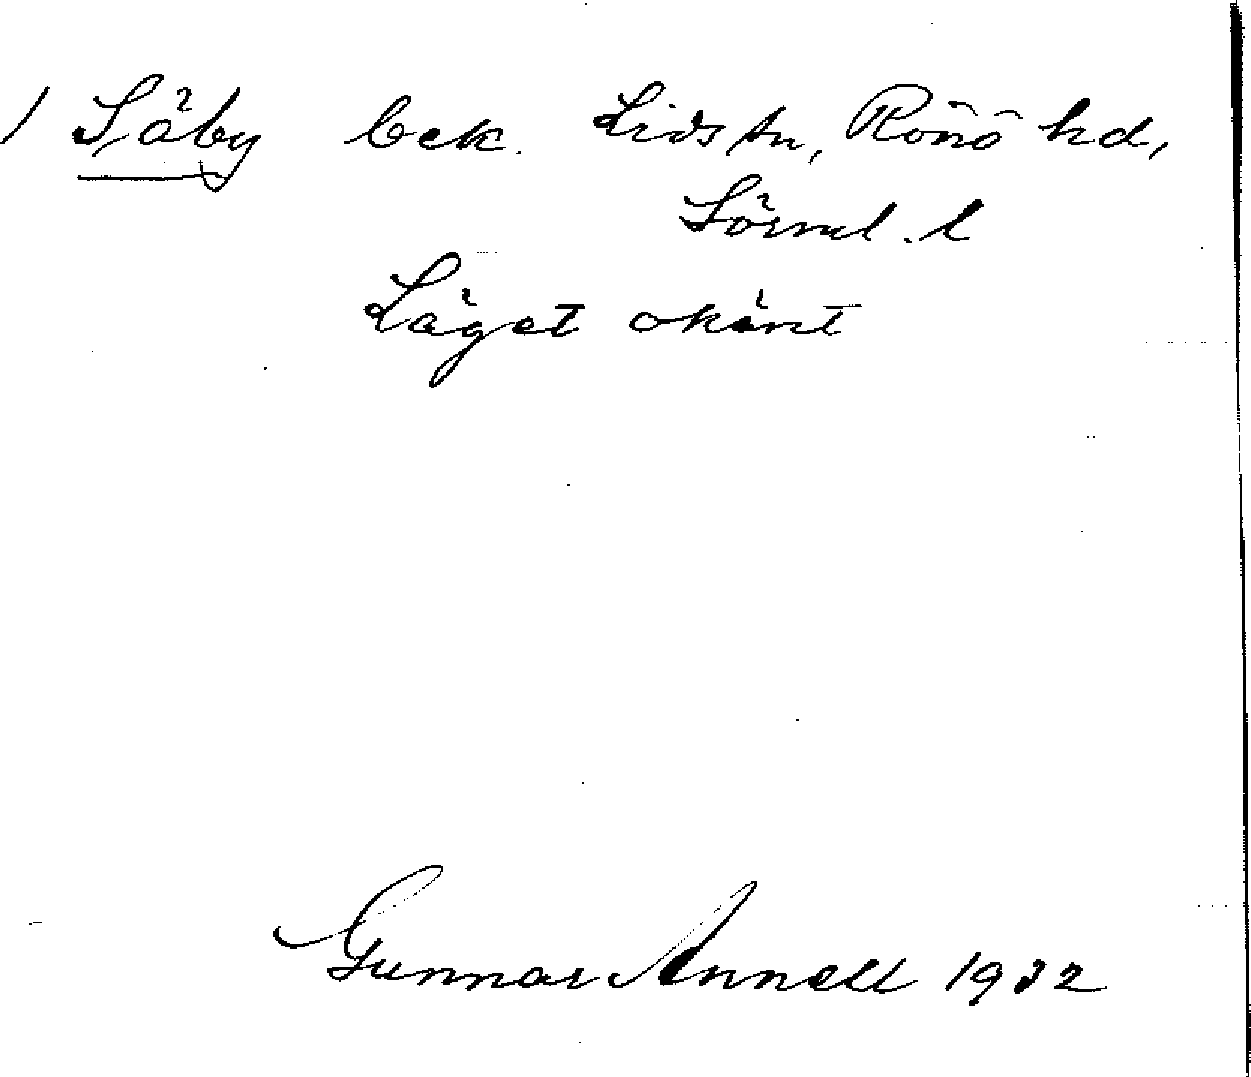 / Säby bek. Lids sn, Rönö hd,
Sörml. l
Läget okänt
Gunnar Annell 1932